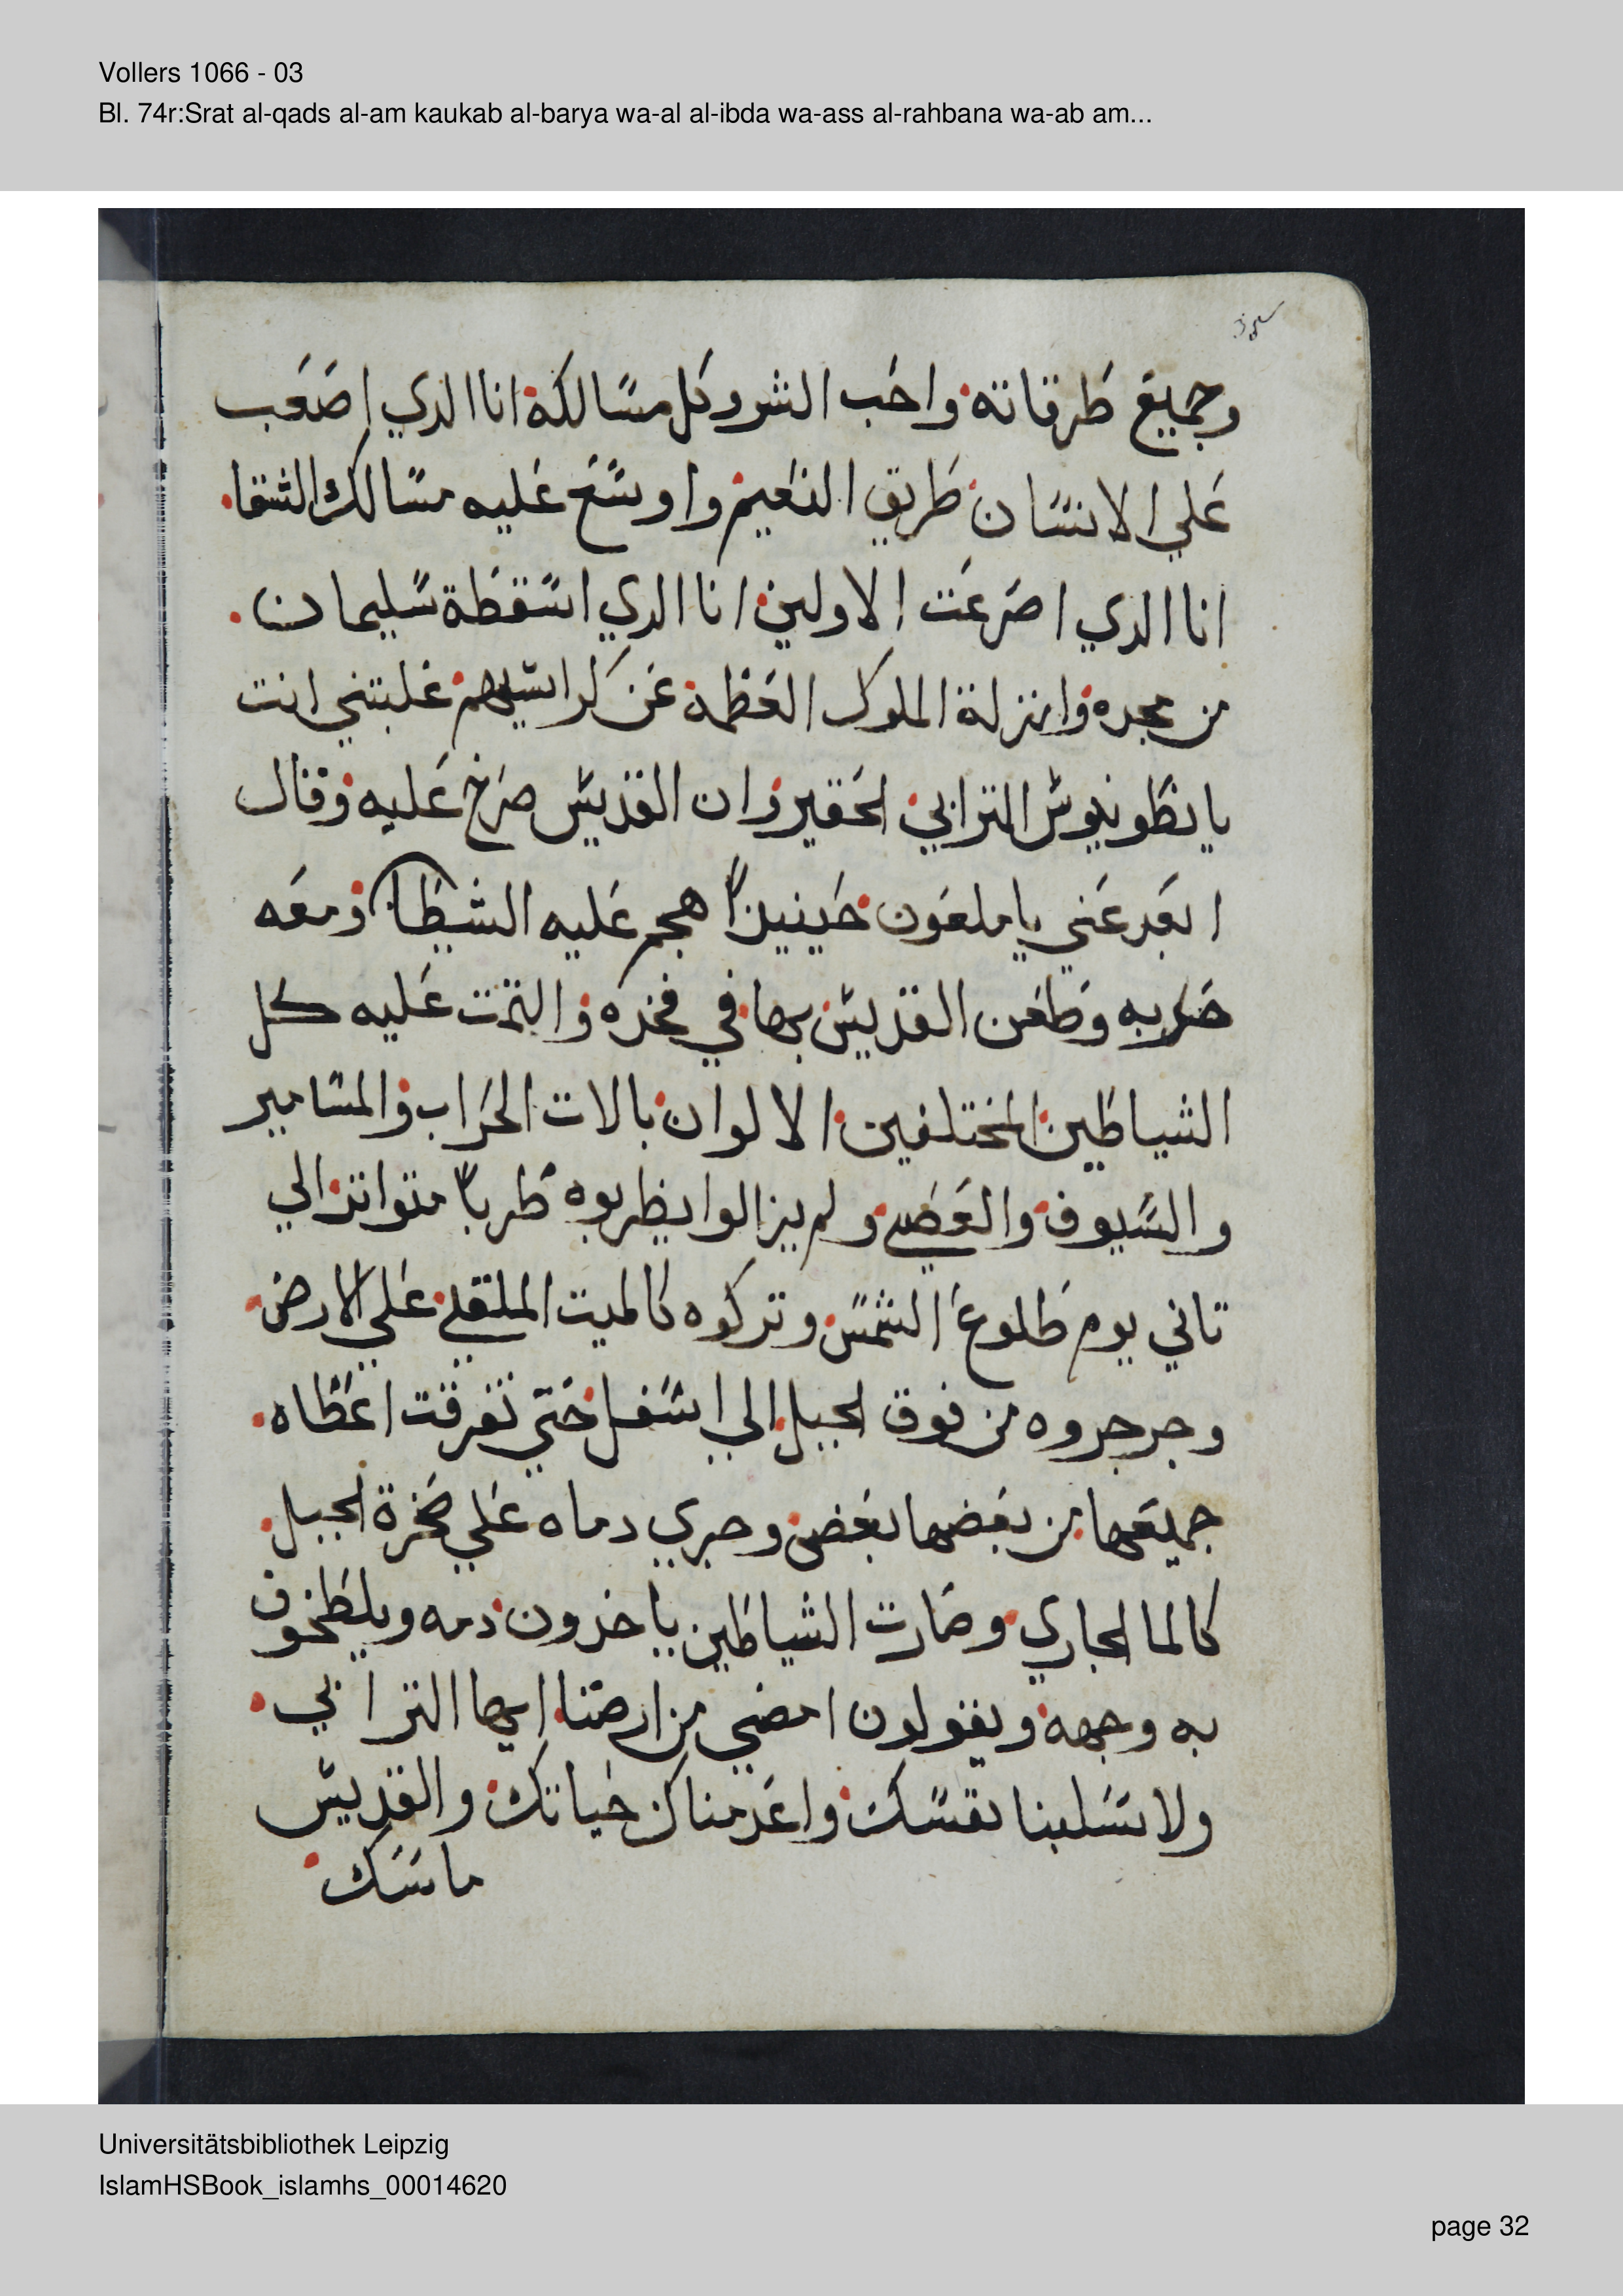 Vollers 1066 - 03
Bl. 74r:Srat al-qads al-am kaukab al-barya wa-al al-ibda wa-ass al-rahbana wa-ab am...
وجميع طرقاته واحب الشر وكل مسالكه انا الدي اصعب
علي الانسان طريق النعيم واوسع عليه مسالك الشقا
انا الدي اصرعت الاولين انا الدي اسقطة سليمان
من مجده وانزلة الملوك العظمه عن كراسيهم غلبتني انت
يا نطونيوس الترابي الحقير وان القديس صرخ عليه وقال
ابعد عني يا ملعون حينيدًا هجم عليه الشيطان ومعه
حربه وطعن القديس بها في فخده والتمت عليه كل
الشياطين المختلفين الالوان بالات الحراب والمسامير
والسيوف والعصي ولم يزالوا يظربوه ظربًا متواتر الي
تاني يوم طلوع الشمس وتركوه كالميت الملقي علي الارض
وجرجروه من فوق الجبل الي اسفل حتي تفرقت اعظاه
جميعها من بعضها بعض وجري دماه علي صخرة الجبل
كالما الجاري وصارت الشياطين ياخدون دمه ويلطخون
به وجهه ويقولون امضي من ارضنا ايها الترابي
ولا تسلبنا نفسك واعدمناك حياتك والقديس
ماسك
Universitätsbibliothek Leipzig
IslamHSBook_islamhs_00014620
page 32